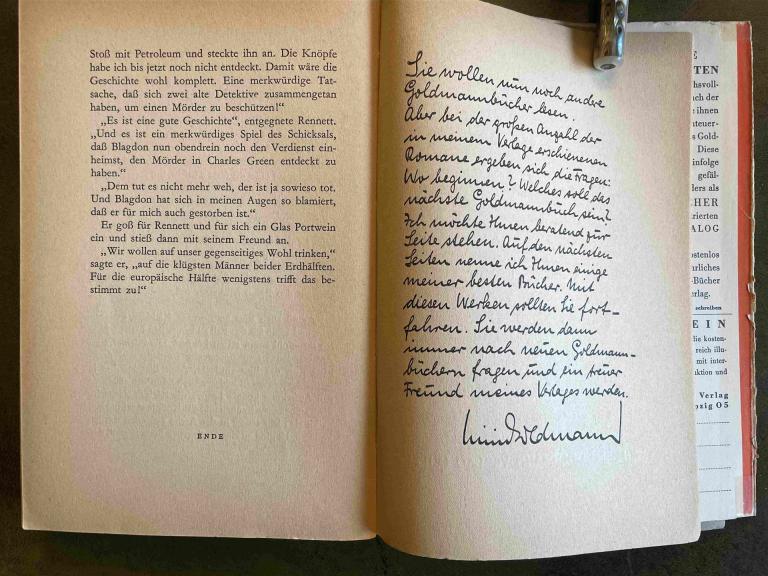 Stoß mit Petroleum und steckte ihn an. Die Knöpfe
habe ich bis jetzt noch nicht entdeckt. Damit wäre die
Geschichte wohl komplett. Eine merkwürdige Tat-
sache, daß sich zwei alte Detektive zusammengetan
haben, um einen Mörder zu beschützen!“
„Es ist eine gute Geschichte“, entgegnete Rennett.
„Und es ist ein merkwürdiges Spiel des Schicksals,
daß Blagdon nun obendrein noch den Verdienst ein-
heimst, den Mörder in Charles Green entdeckt zu
haben.“
„Dem tut es nicht mehr weh, der ist ja sowieso tot.
Und Blagdon hat sich in meinen Augen so blamiert,
daß er für mich auch gestorben ist.“
Er goß für Rennett und für sich ein Glas Portwein
ein und stieß dann mit seinem Freund an.
„Wir wollen auf unser gegenseitiges Wohl trinken,“
sagte er, „auf die klügsten Männer beider Erdhälften.
Für die europäische Hälfte wenigstens trifft das be-
stimmt zu!“
ENDE
Sie wollen nun noch andere
Goldmannbücher lesen.
Aber bei der großen Anzahl der
in meinem Verlage erschienenen
Romane ergeben sich die Fragen:
Wo beginnen? Welches soll das
nächste Goldmannbuch sein?
Ich möchte Ihnen beratend zur
Seite stehen. Auf den nächsten
Seiten nenne ich Ihnen einige
meiner besten Bücher. Mit
diesen Werken sollten Sie fort-
fahren. Sie werden dann
immer nach neuen Goldmann-
büchern fragen und ein treuer
Freund meines Verlages werden.
Goldmann
E
TEN
hsvoll-
ch der
ihnen
teuer-
Gold-
Diese
infolge
gefäl-
ders als
CHER
trierten
ALOG
ostenlos
urliches
-Bücher
rlag.
schreiben
EIN
die kosten-
reich illu-
mit inter-
ktion und
Verlag
pzig O 5